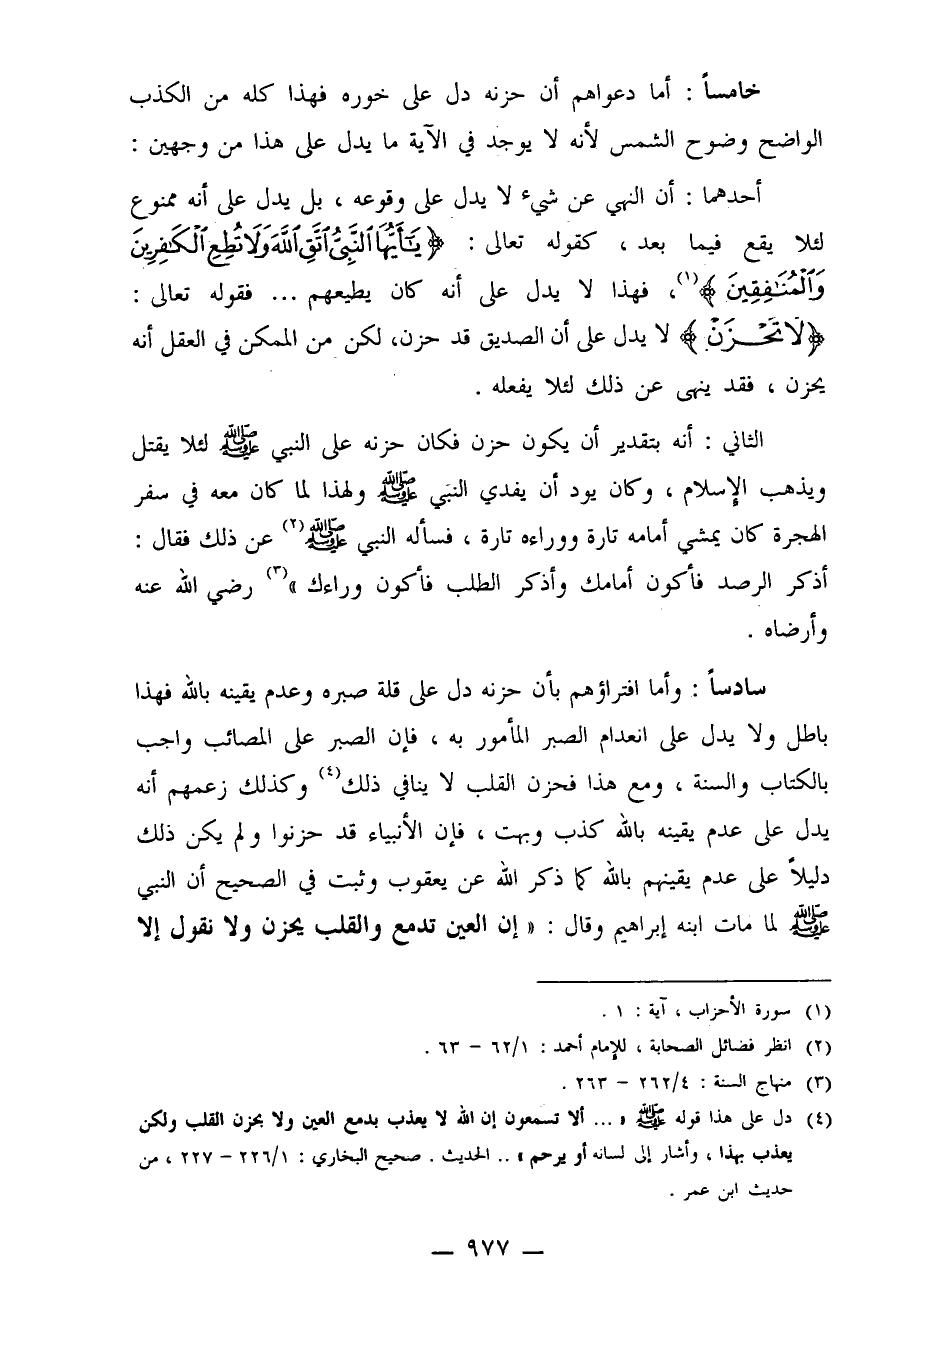 خامساً : أما دعواهم أن حزنه دل على خوره فهذا كله من الكذب
الواضح وضوح الشمس لأنه لا يوجد في الآية ما يدل على هذا من وجهين :
أحدهما : أن النهي عن شيء لا يدل على وقوعه ، بل يدل على أنه ممنوع
لئلا يقع فيما بعد ، كقوله تعالى : ﴿ يَٰٓأَيُّهَا ٱلنَّبِيُّ ٱتَّقِ ٱللَّهَ وَلَا تُطِعِ ٱلْكَٰفِرِينَ
وَٱلْمُنَٰفِقِينَ ﴾(١)، فهذا لا يدل على أنه كان يطيعهم ... فقوله تعالى :
﴿لَا تَحْزَنْ ﴾ لا يدل على أن الصديق قد حزن، لكن من الممكن في العقل أنه
يحزن ، فقد ينهى عن ذلك لئلا يفعله .
الثاني : أنه بتقدير أن يكون حزن فكان حزنه على النبي ﷺ لئلا يقتل
ويذهب الإسلام ، وكان يود أن يفدي النبي ﷺ ولهذا لما كان معه في سفر
الهجرة كان يمشي أمامه تارة ووراءه تارة ، فسأله النبي ﷺ(٢) عن ذلك فقال :
أذكر الرصد فأكون أمامك وأذكر الطلب فأكون وراءك »(٣) رضي الله عنه
وأرضاه .
سادساً : وأما افتراؤهم بأن حزنه دل على قلة صبره وعدم يقينه بالله فهذا
باطل ولا يدل على انعدام الصبر المأمور به ، فإن الصبر على المصائب واجب
بالكتاب والسنة ، ومع هذا فحزن القلب لا ينافي ذلك(٤) وكذلك زعمهم أنه
يدل على عدم يقينه بالله كذب وبهت ، فإن الأنبياء قد حزنوا ولم يكن ذلك
دليلاً على عدم يقينهم بالله كما ذكر الله عن يعقوب وثبت في الصحيح أن النبي
ﷺ لما مات ابنه إبراهيم وقال : « إن العين تدمع والقلب يحزن ولا نقول إلا
(١) سورة الأحزاب ، آية : ١ .
(٢) انظر فضائل الصحابة ، للإمام أحمد : ٦٢/١ – ٦٣ .
(٣) منهاج السنة : ٢٦٢/٤ – ٢٦٣ .
(٤) دل على هذا قوله ﷺ « ... ألا تسمعون إن الله لا يعذب بدمع العين ولا بحزن القلب ولكن
يعذب بهذا ، وأشار إلى لسانه أو يرحم » .. الحديث . صحيح البخاري : ٢٢٦/١ – ٢٢٧ ، من
حديث ابن عمر .
— ٩٧٧ —